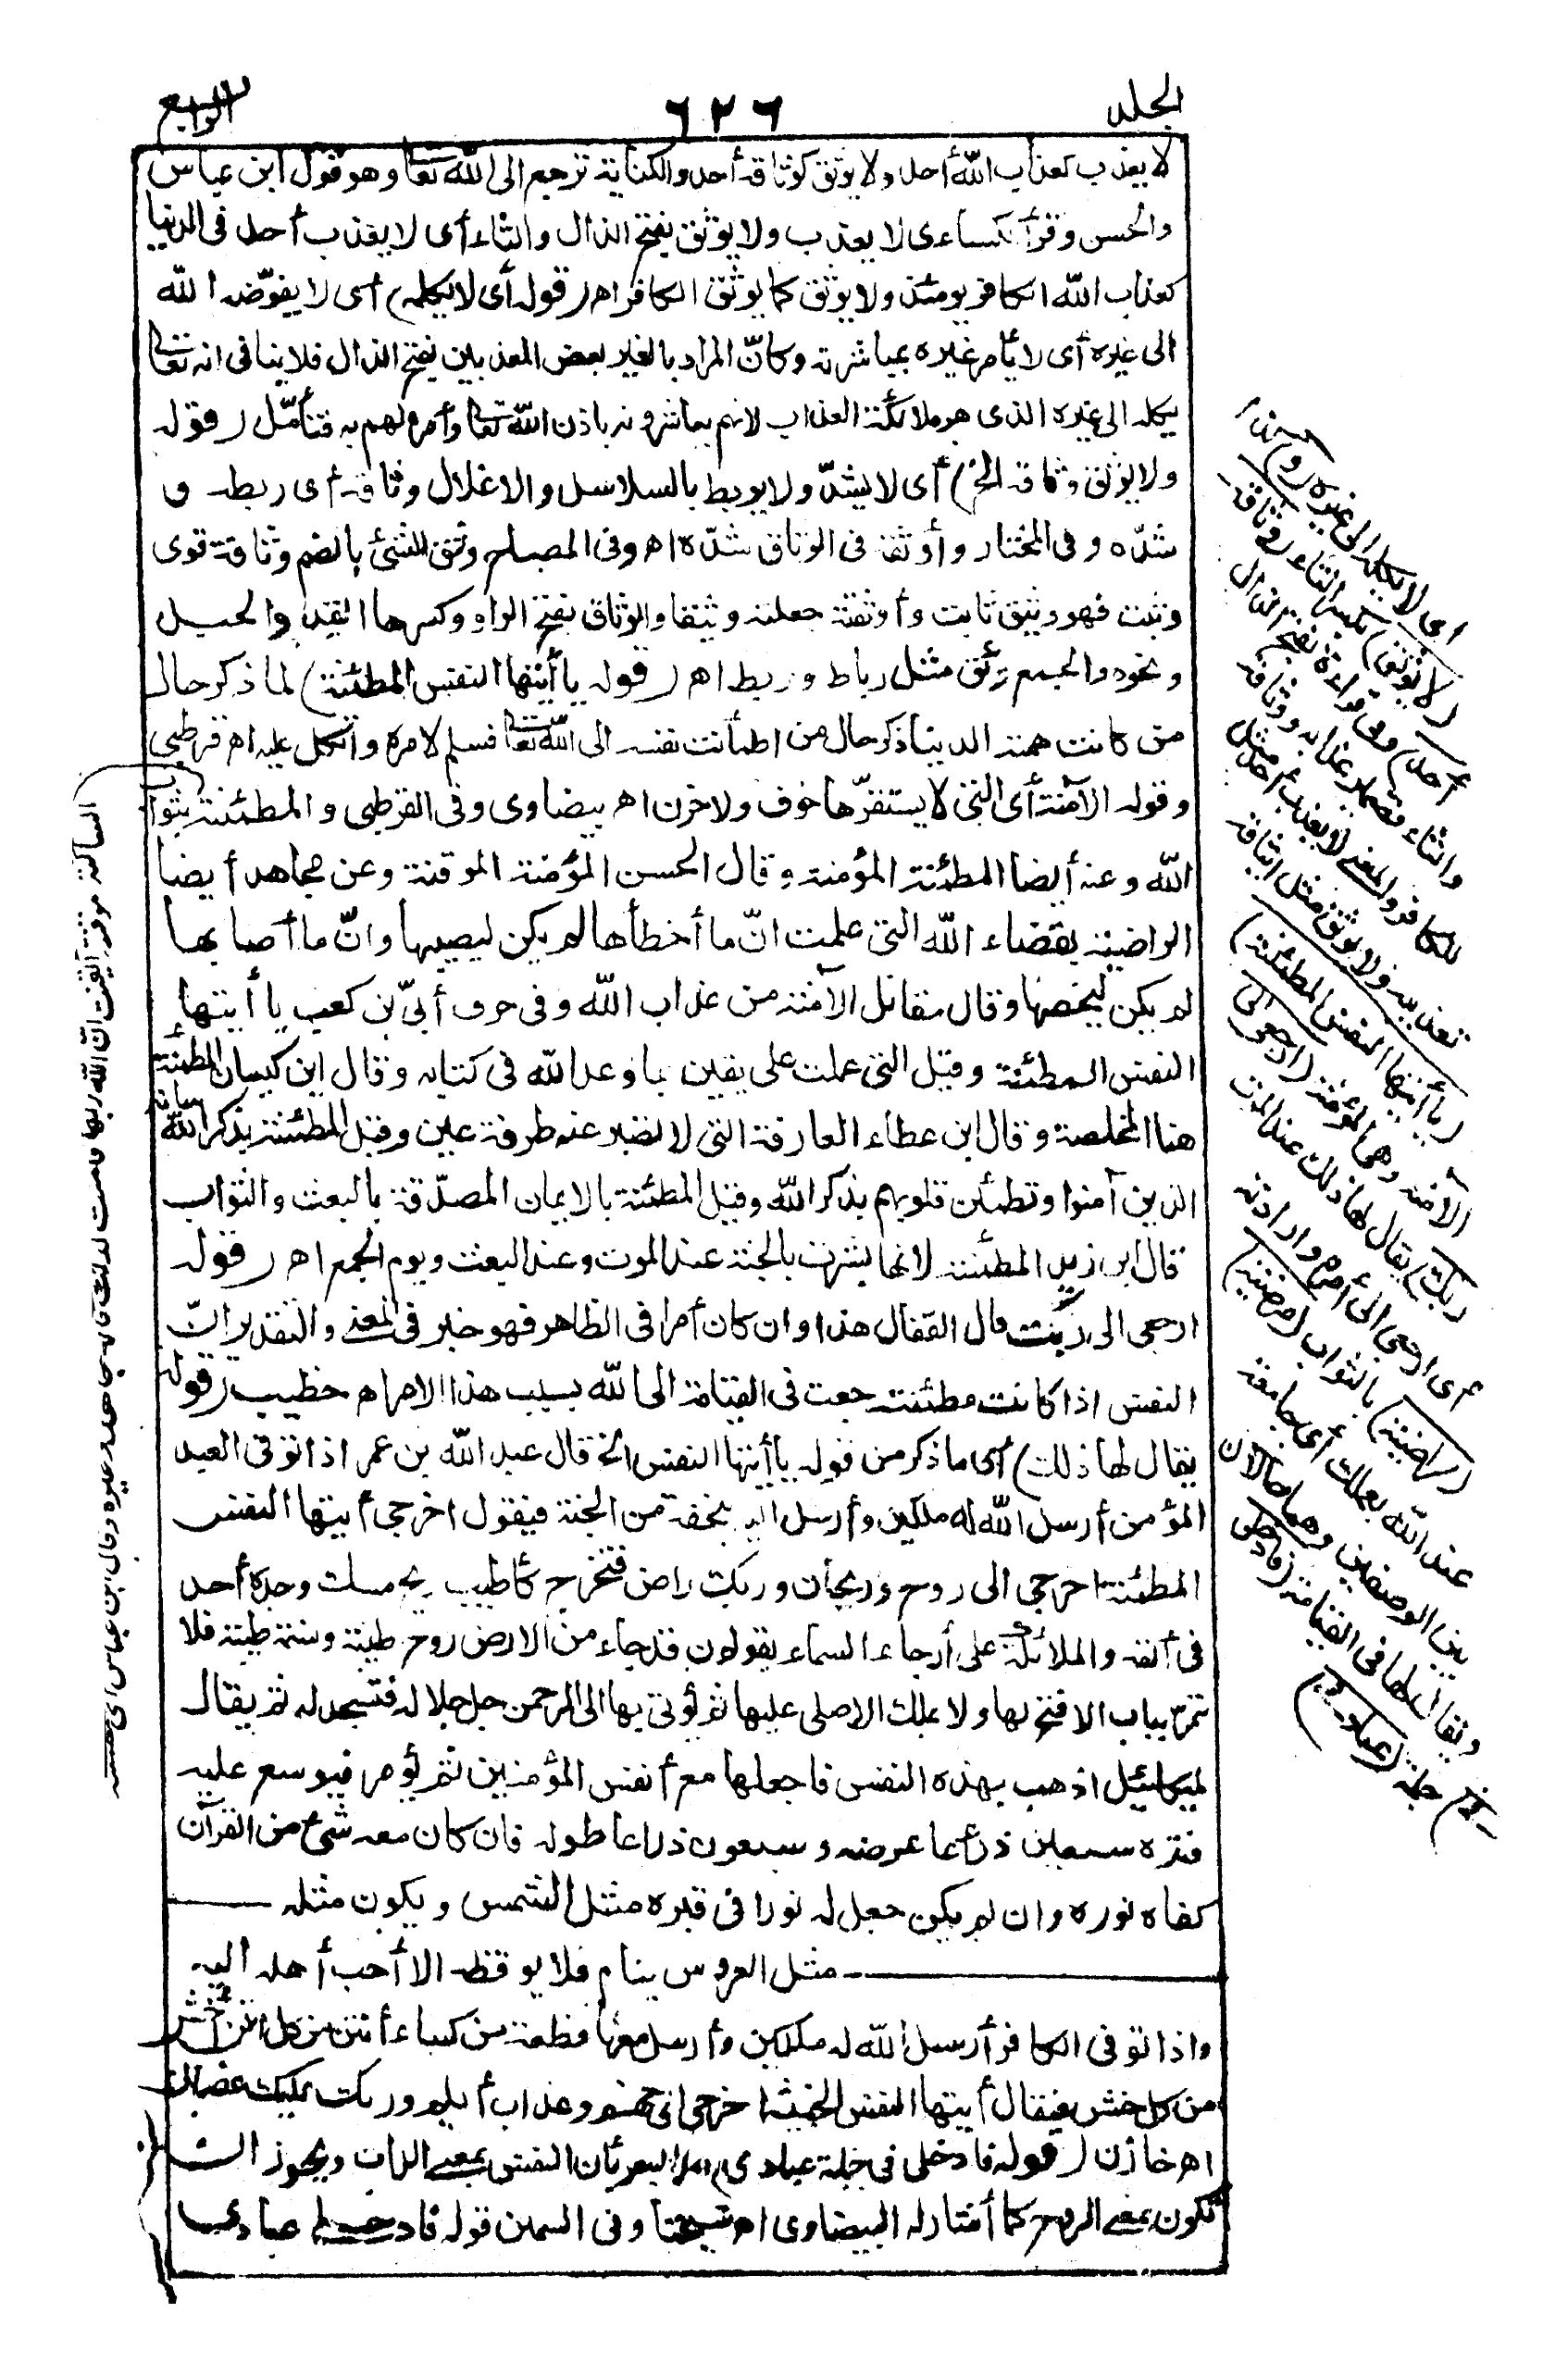 الجلد ٦٢٦ الرابع
لا يعذب كعذاب الله أحد ولا يوثق كوثاقه أحد والكناية ترجع الى الله تعالى وهو قول ابن عباس
والحسن وقرأ الكساءى لا يعذب ولا يوثق بفتح الذال والثاء أى لا يعذب أحد فى الدنيا
كعذاب الله الكافر يومئذ ولا يوثق كما يوثق الكافر اهـ (قوله أى لا يكله) أى لا يفوّضه الله
الى غيره أى لا يأمر غيره بمباشرته وكانّ المراد بالغير بعض المعذبين بفتح الذال فلا ينافى انه تعالى
يكله الى غيره الذى هو ملائكة العذاب لانهم يباشرونه باذن الله تعالى وأمره لهم به فتأمّل (قوله
ولا يوثق وثاقه الخ) أى لا يشدّ ولا يربط بالسلاسل والاغلال وثاقه أى ربطه و
شدّه وفى المختار وأوثقه فى الوثاق شدّه اهـ وفى المصباح وثق الشئ بالضم وثاقة قوى
وثبت فهو وثيق ثابت وأوثقته جعلته وثيقا والوثاق بفتح الواو وكسرها القيد والحبل
ونحوه والجمع وثق مثل رباط وربط اهـ (قوله يا أيتها النفس المطمئنة) لما ذكر حال
من كانت همته الدنيا ذكر حال من اطمأنت نفسه الى الله تعالى فسلم لامره واتكل عليه اهـ قرطبى
وقوله الآمنة أى التى لا يستفزّها خوف ولا حزن اهـ بيضاوى وفى القرطبى والمطمئنة بثواب
الله وعنه أيضا المطمئنة المؤمنة وقال الحسن المؤمنة الموقنة وعن مجاهد أيضا
الراضية بقضاء الله التى علمت انّ ما أخطأها لم يكن ليصيبها وانّ ما أصابها
لم يكن ليخطئها وقال مقاتل الآمنة من عذاب الله وفى حرف أبىّ بن كعب يا أيتها
النفس المطمئنة وقيل التى عملت على يقين بما وعد الله فى كتابه وقال ابن كيسان المطمئنة
هنا المخلصة وقال ابن عطاء العارفة التى لا تصبر عنه طرفة عين وقيل المطمئنة بذكر الله بيانه
الذين آمنوا وتطمئن قلوبهم بذكر الله وقيل المطمئنة بالايمان المصدّقة بالبعث والثواب
قال ابن زيد المطمئنة لانها بشرت بالجنة عند الموت وعند البعث ويوم الجمع اهـ (قوله
ارجعى الى ربك قال القفال هذا وان كان أمرا فى الظاهر فهو خبر فى المعنى والتقدير انّ
النفس اذا كانت مطمئنة رجعت فى القيامة الى الله بسبب هذا الامر اهـ خطيب (قوله
يقال لها ذلك) أى ما ذكر من قوله يا أيتها النفس الخ قال عبد الله بن عمر اذا توفى العبد
المؤمن أرسل الله له ملكين وأرسل اليه بتحفة من الجنة فيقول اخرجى أيتها النفس
المطمئنة اخرجى الى روح وريحان وربك راض فتخرج كأطيب ريح مسك وجده أحد
فى أنفه والملائكة على أرجاء السماء يقولون قد جاء من الارض روح طيبة ونسمة طيبة فلا
تمرّ بباب الا فتح لها ولا بملك الا صلى عليها ثم يؤتى بها الى الرحمن جل جلاله فتسجد له ثم يقال
لميكائيل اذهب بهذه النفس فاجعلها مع أنفس المؤمنين ثم يؤمر فيوسع عليه
قبره سبعين ذراعا عرضه وسبعون ذراعا طوله فان كان معه شئ من القرآن
كفاه نوره وان لم يكن جعل له نورا فى قبره مثل الشمس ويكون مثله
مثل العروس ينام فلا يوقظه الا أحب أهله اليه
واذا توفى الكافر أرسل الله له ملكين وأرسل معهما قطعة من كساء أنتن من كل نتن وأخشن
من كل خشن فيقال أيتها النفس الخبيثة اخرجى الى جهنم وعذاب أليم وربك عليك غضبان
اهـ خازن (قوله فادخلى فى جملة عبادى) النفس بمعنى الذات ويجوز أن
تكون بمعنى الروح كما أشار له البيضاوى اهـ شيخنا وفى السمين قوله فادخلى عبادى
أى لا يكله الى غيره (و) كذا
(لا يوثق) بكسر الثاء (وثاقه
أحد) وفى قراءة بفتح الذال
والثاء فضمير عذابه ووثاقه
للكافر والمعنى لا يعذب أحد مثل
تعذيبه ولا يوثق مثل ايثاقه
(يا أيتها النفس المطمئنة)
الآمنة وهى المؤمنة (ارجعى الى
ربك) يقال لها ذلك عند الموت
أى ارجعى الى أمره وارادته
(راضية) بالثواب (مرضية)
عند الله بعملك أى جامعة
بين الوصفين وهما حالان
ويقال لها فى القيامة (فادخلى
فى) جملة (عبادى)
الساكنة موقنة أيقنت انّ الله ربها فأخبتت لذلك قاله مجاهد وغيره وقال ابن عباس أى